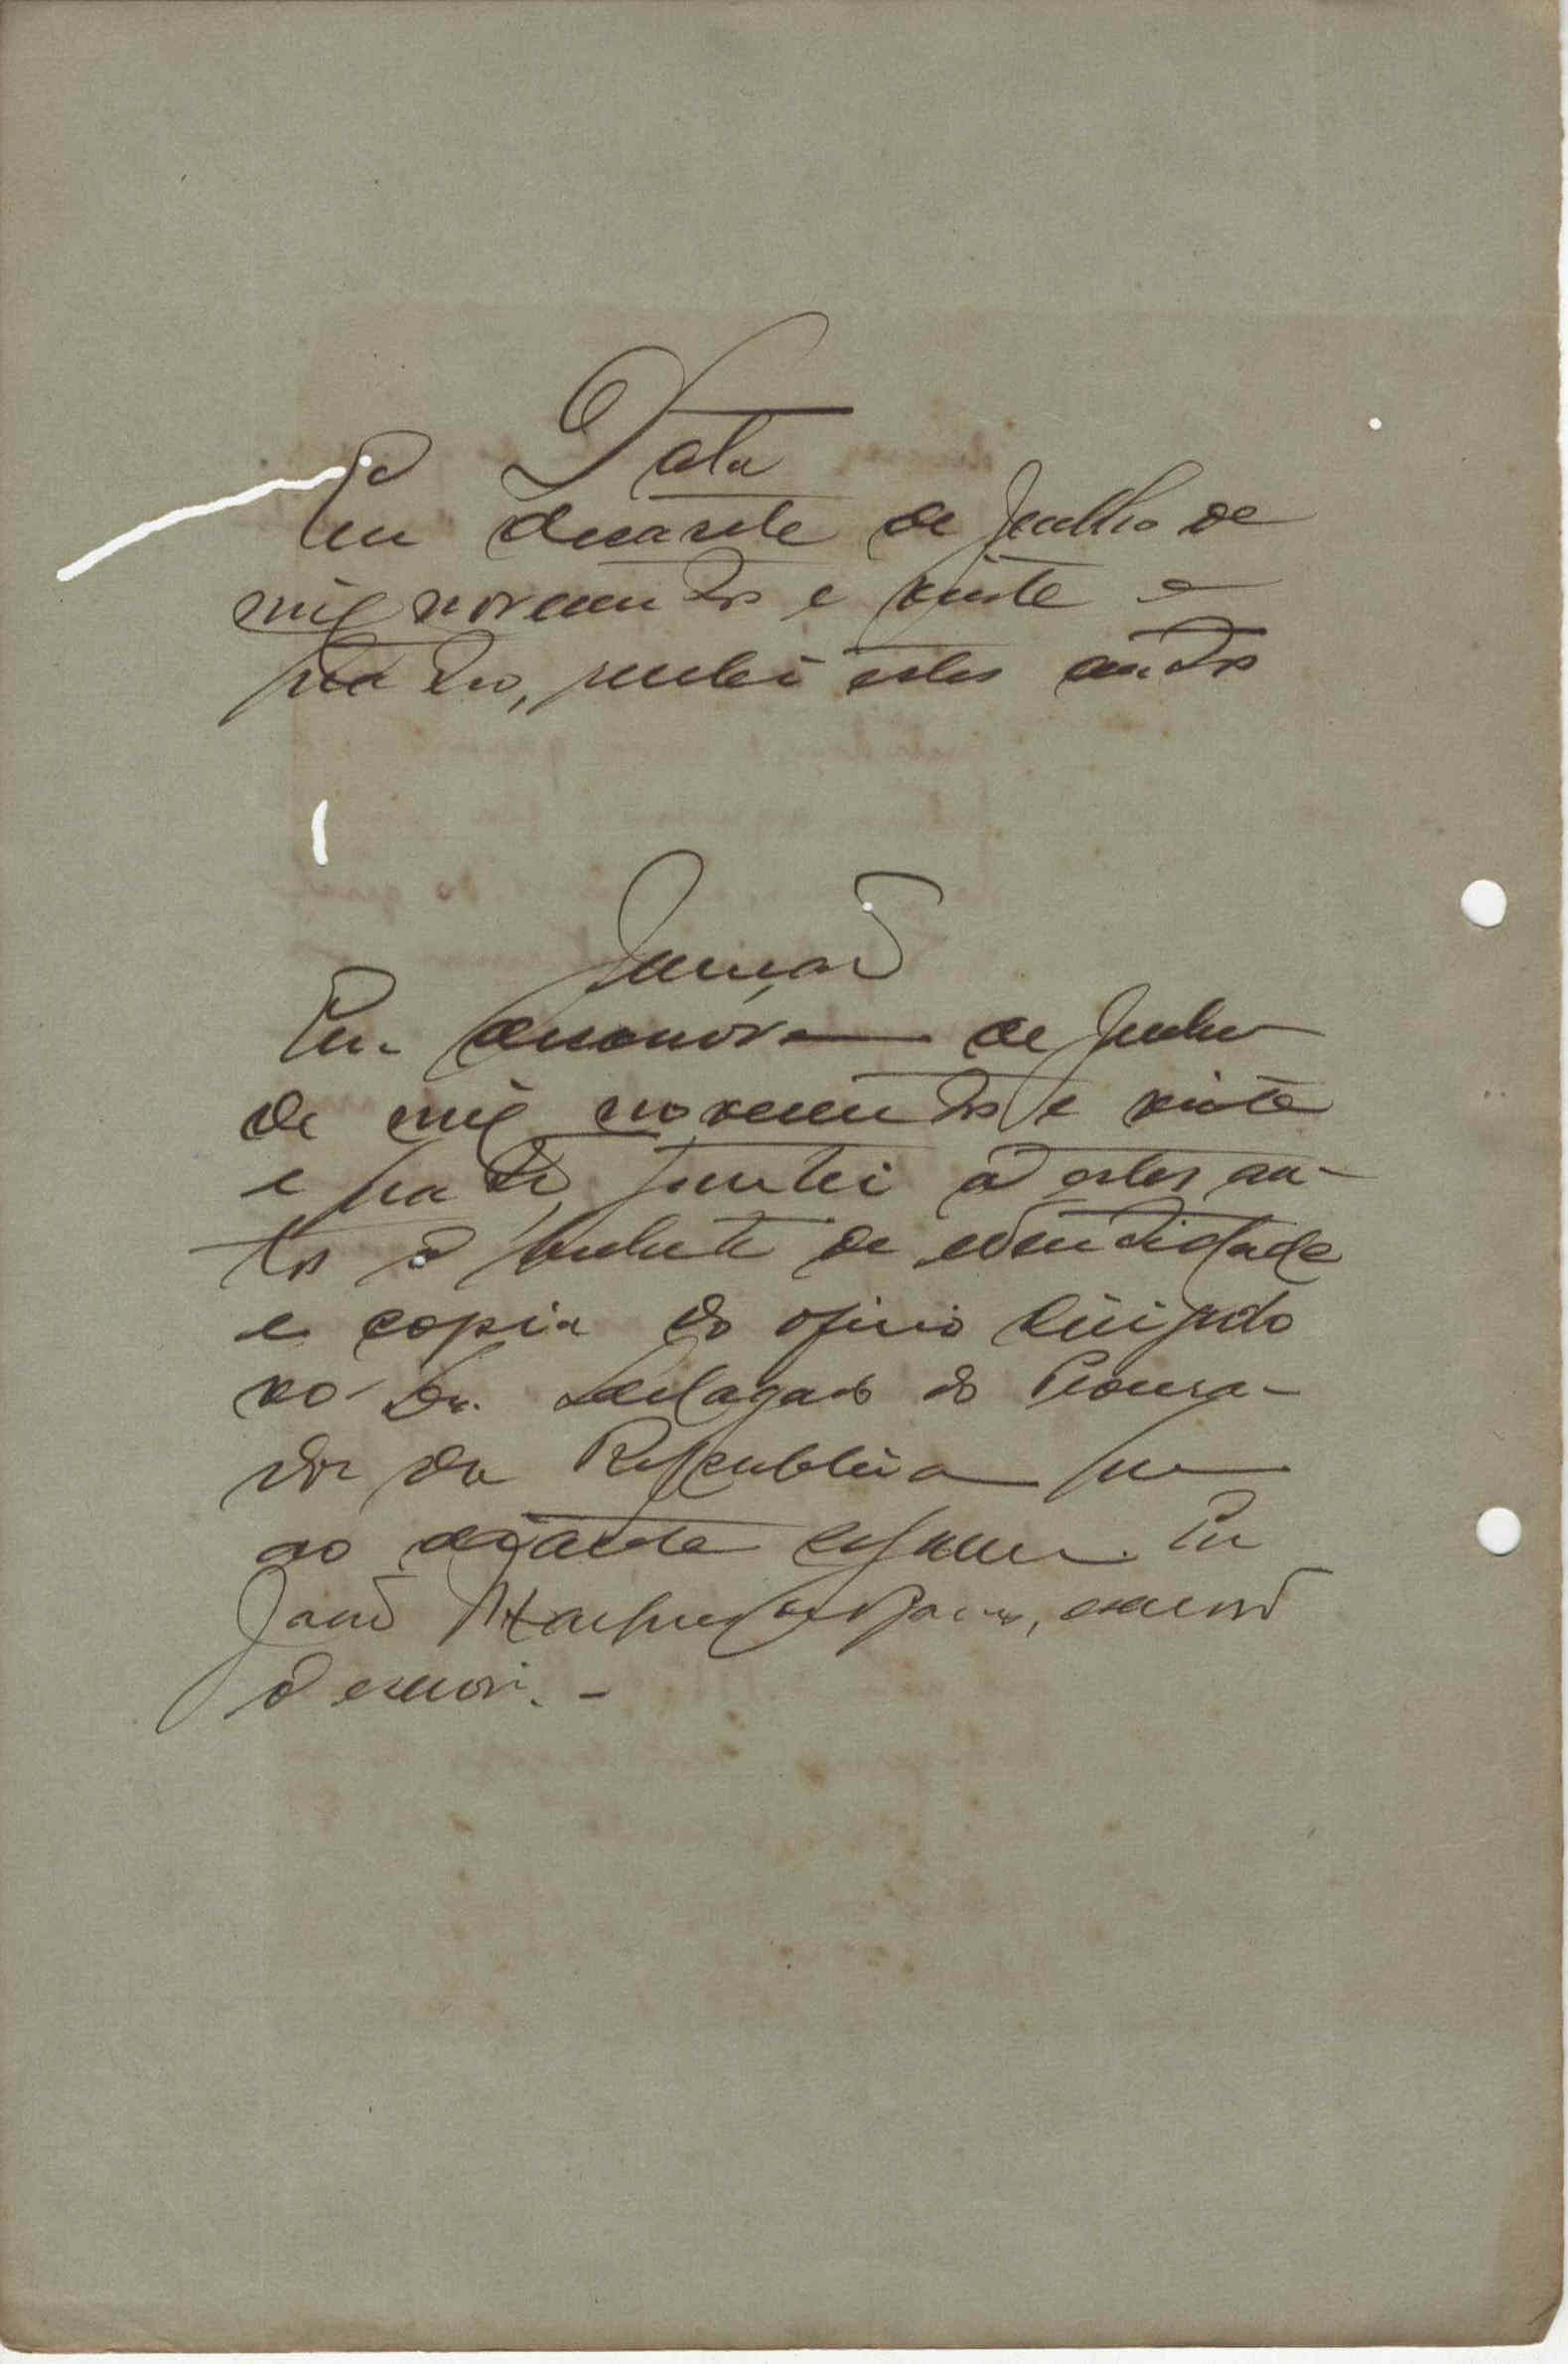 Data
Em dezasete de Julho de
mil novecentos e vinte e
quatro, recebi estes autos
Juntada
Em dezanove de Julho
de mil novecentos e vinte
e quatro, juntei a estes au-
tos o bilhete de edentidade
e copia do oficio dirigido
ao Dr. Delagado do Procura-
dor da Republica que
ao adeante segue. Eu
escrivão
o escrevi. -